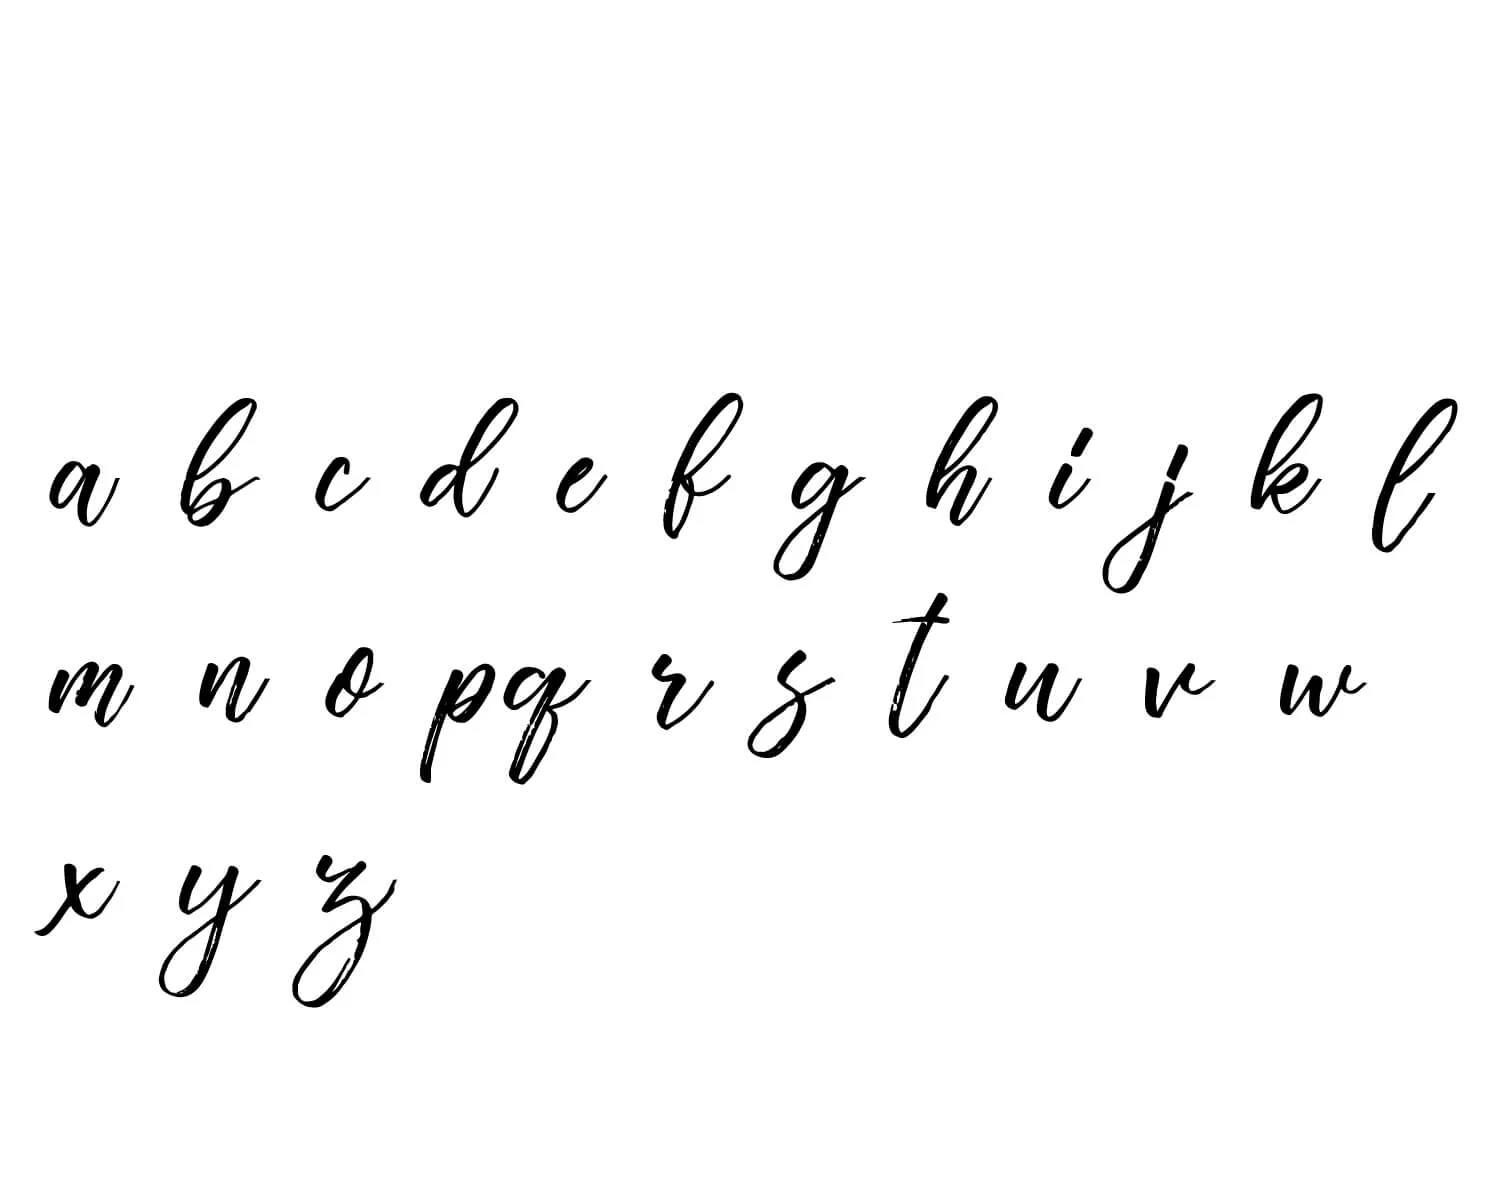 a b c d e f g h i j k l
m n o p q r s t u v w
x y z